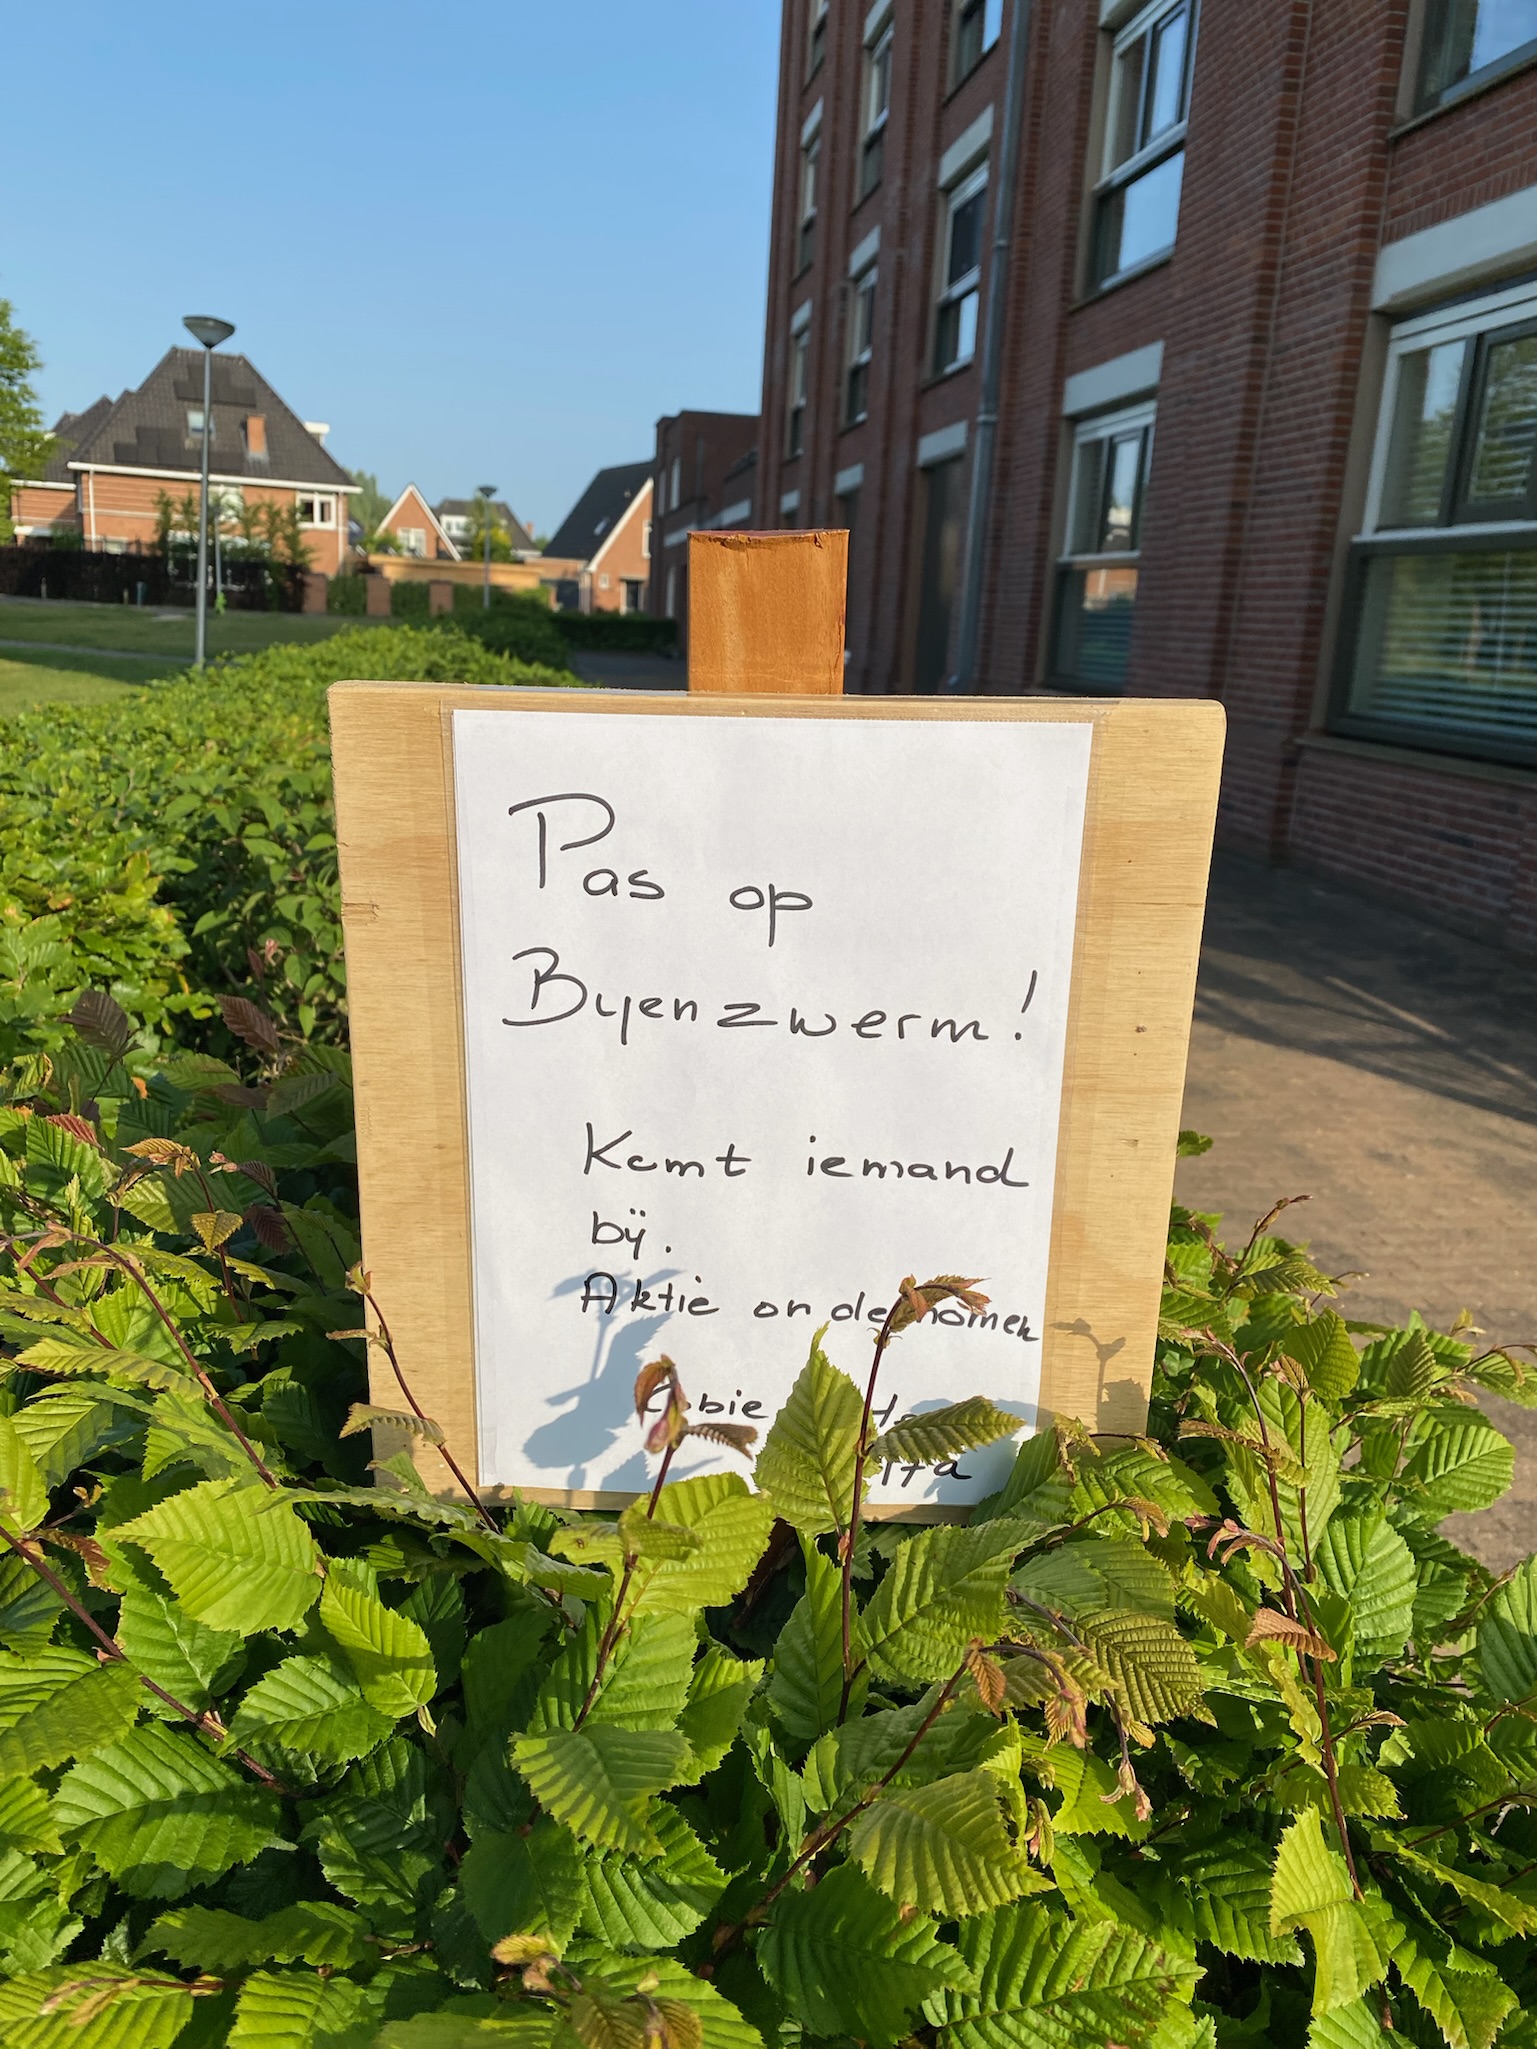 Pas op
Bijenzwerm!
Komt iemand
bij.
Aktie ondernomen